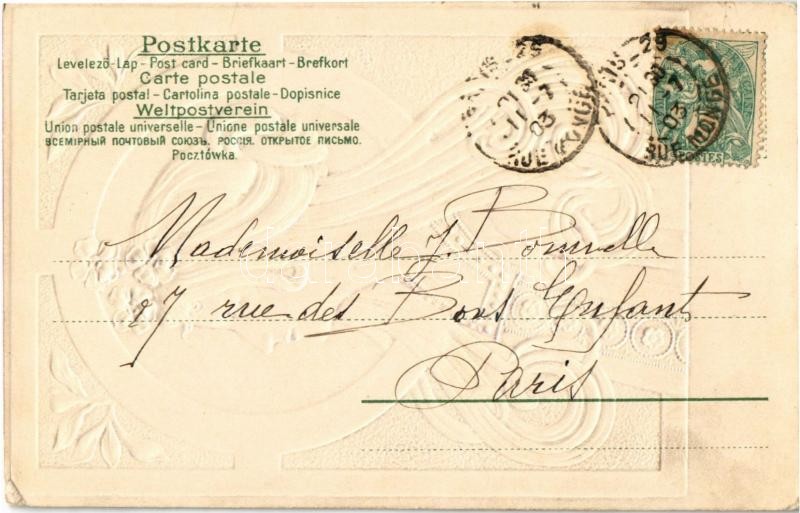 Postkarte
Levelező-Lap - Post card - Briefkaart - Brefkort
Carte postale
Tarjeta postal - Cartolina postale - Dopisnice
Weltpostverein
Union postale universelle - Unione postale universale
ВСЕМІРНЫЙ ПОЧТОВЫЙ СОЮЗЪ. РОССІЯ. ОТКРЫТОЕ ПИСЬМО.
Pocztówka.
PARIS - 29
21 30
11 - 7
03
RUE MONGE
PARIS - 29
21 30
11 - 7
03
RUE MONGE
POSTES
Mademoiselle J.
27 rue des Bons Enfants
Paris